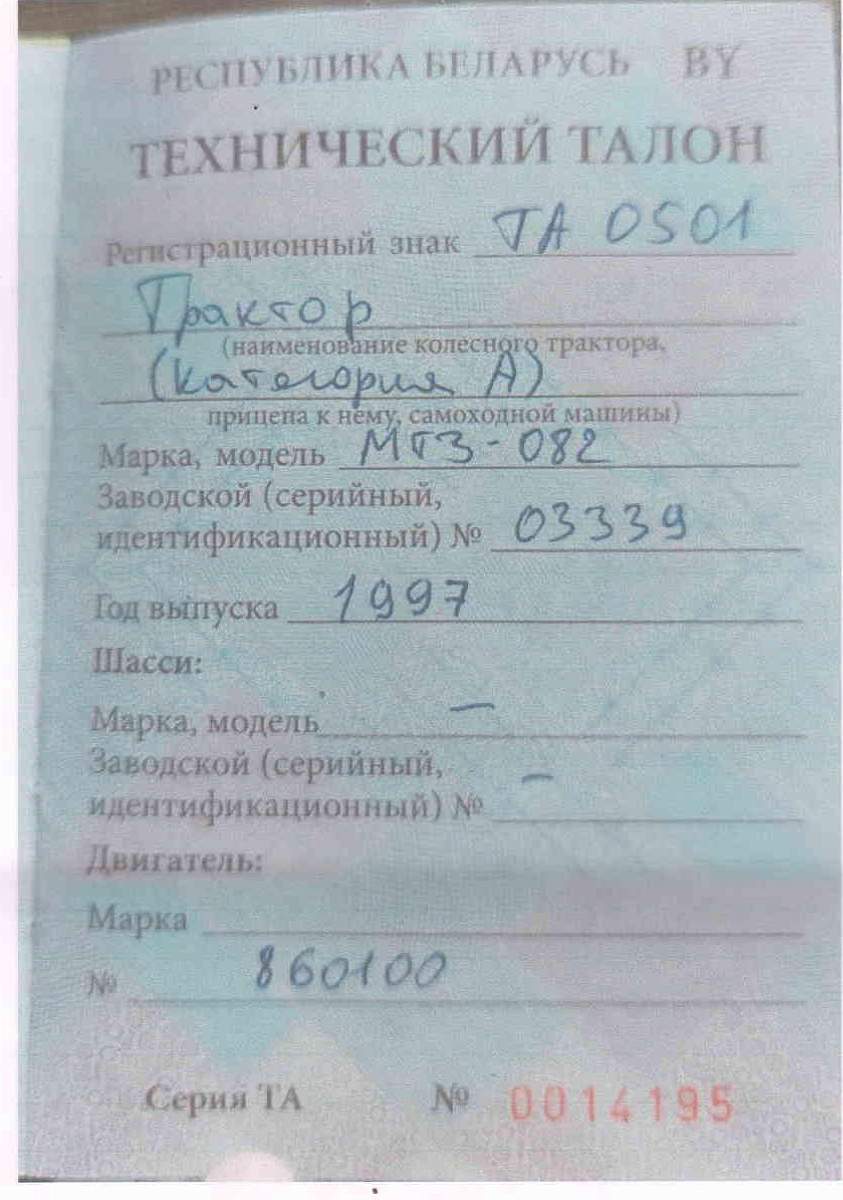 РЕСПУБЛИКА БЕЛАРУСЬ BY
ТЕХНИЧЕСКИЙ ТАЛОН
Регистрационный знак ТА 0501
Трактор
(наименование колесного трактора,
(категория А)
прицепа к нему, самоходной машины)
Марка, модель МТЗ-082
Заводской (серийный,
идентификационный) № 03339
Год выпуска 1997
Шасси:
Марка, модель —
Заводской (серийный,
идентификационный) № —
Двигатель:
Марка
№ 860100
Серия ТА № 0014195